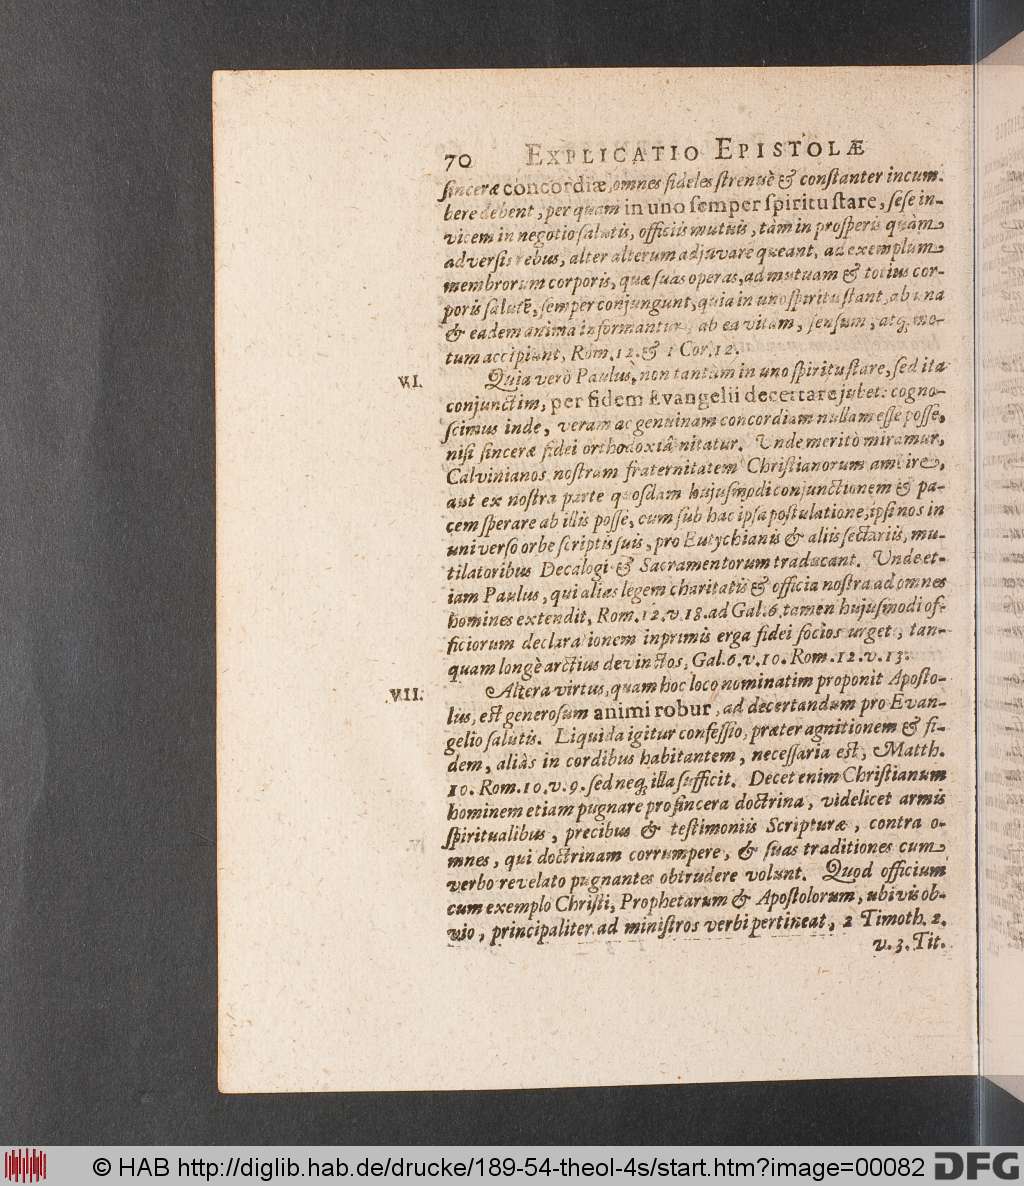 70 EXPLICATIO EPISTOLÆ
sinceræ concordiæ, omnes fideles strenuè & constanter incum-
bere debent, per quam in uno semper spiritu stare, sese in-
vicem in negotio salutis, officiis mutuis, tàm in prosperis quàm
adversis rebus, alter alterum adjuvare queant, ad exemplum
membrorum corporis, quæ suas operas, ad mutuam & totius cor-
poris salutẽ, semper conjungunt, quia in uno spiritu stant, ab una
& eadem anima informantur, ab ea vitam, sensum, atq; mo-
tum accipiunt, Rom. 12. & 1 Cor. 12.
VI. Quia verò Paulus, non tantùm in uno spiritu stare, sed ita
conjunctim, per fidem Evangelii decertare jubet: cogno-
scimus inde, veram ac genuinam concordiam nullam esse posse,
nisi sinceræ fidei orthodoxiâ nitatur. Unde meritò miramur,
Calvinianos nostram fraternitatem Christianorum ambire,
aut ex nostra parte quosdam hujusmodi conjunctionem & pa-
cem sperare ab illis posse, cum sub hac ipsa postulatione, ipsi nos in
universo orbe scriptis suis, pro Eutychianis & aliis sectariis, mu-
tilatoribus Decalogi & Sacramentorum traducant. Unde et-
iam Paulus, qui aliàs legem charitatis & officia nostra ad omnes
homines extendit, Rom. 12. v. 18. ad Gal. 6. tamen hujusmodi of-
ficiorum declarationem inprimis erga fidei socios urget, tan-
quam longè arctius devinctos, Gal. 6. v. 10. Rom. 12. v. 13.
VII. Altera virtus, quam hoc loco nominatim proponit Aposto-
lus, est generosum animi robur, ad decertandum pro Evan-
gelio salutis. Liquida igitur confessio, præter agnitionem & fi-
dem, aliàs in cordibus habitantem, necessaria est, Matth.
10. Rom. 10. v. 9. sed neq; illa sufficit. Decet enim Christianum
hominem etiam pugnare pro sincera doctrina, videlicet armis
spiritualibus, precibus & testimoniis Scripturæ, contra o-
mnes, qui doctrinam corrumpere, & suas traditiones cum
verbo revelato pugnantes obtrudere volunt. Quod officium
cum exemplo Christi, Prophetarum & Apostolorum, ubivis ob-
vio, principaliter ad ministros verbi pertineat, 2 Timoth. 2.
v. 3. Tit.
© HAB http://diglib.hab.de/drucke/189-54-theol-4s/start.htm?image=00082 DFG